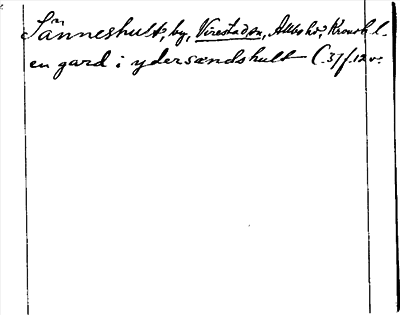 Sånneshult, by, Virestad sn, Allbo hd, Kronob l.
en gard i ydersandshult C. 37 f. 12 v.